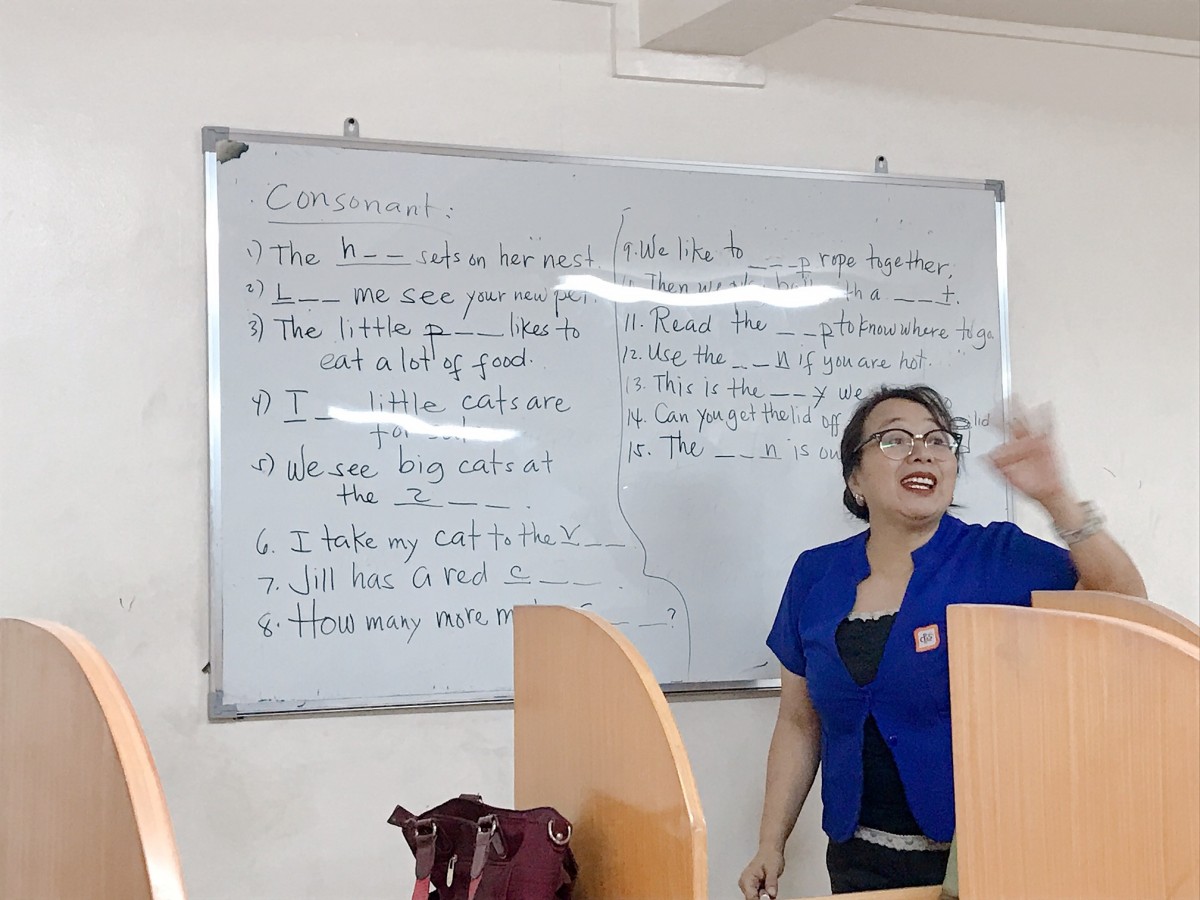 Consonant:
1) The h _ _ sets on her nest.
2) L _ _ me see your new pet.
3) The little p _ _ likes to
eat a lot of food.
4) I _ little cats are
for
5) We see big cats at
the z _ _ .
6. I take my cat to the v _ _
7. Jill has a red c _ _ .
8. How many more _ _ ?
9. We like to _ _ _ p rope together.
Then we a _ _ t.
11. Read the _ _ p to know where to go.
12. Use the _ _ n if you are hot.
13. This is the _ _ y we
14. Can you get the lid off
lid
15. The _ _ n is